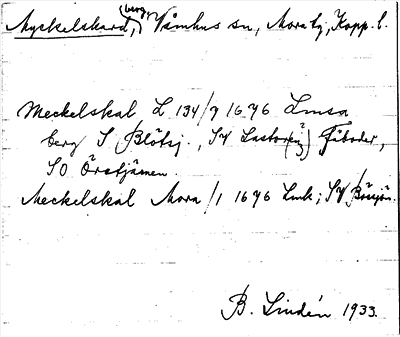 Myckelskard, (berg) Våmhus sn, Mora tg, Kopp. l.
Meckelskal L 134/9 1696 Lmsa
berg S Blötsj., SV Lastoren(?) Fäboder,
SO Örstjärnen.
Meckelskal Mora/1 1696 Lmk; SV
B. Lindén 1933.